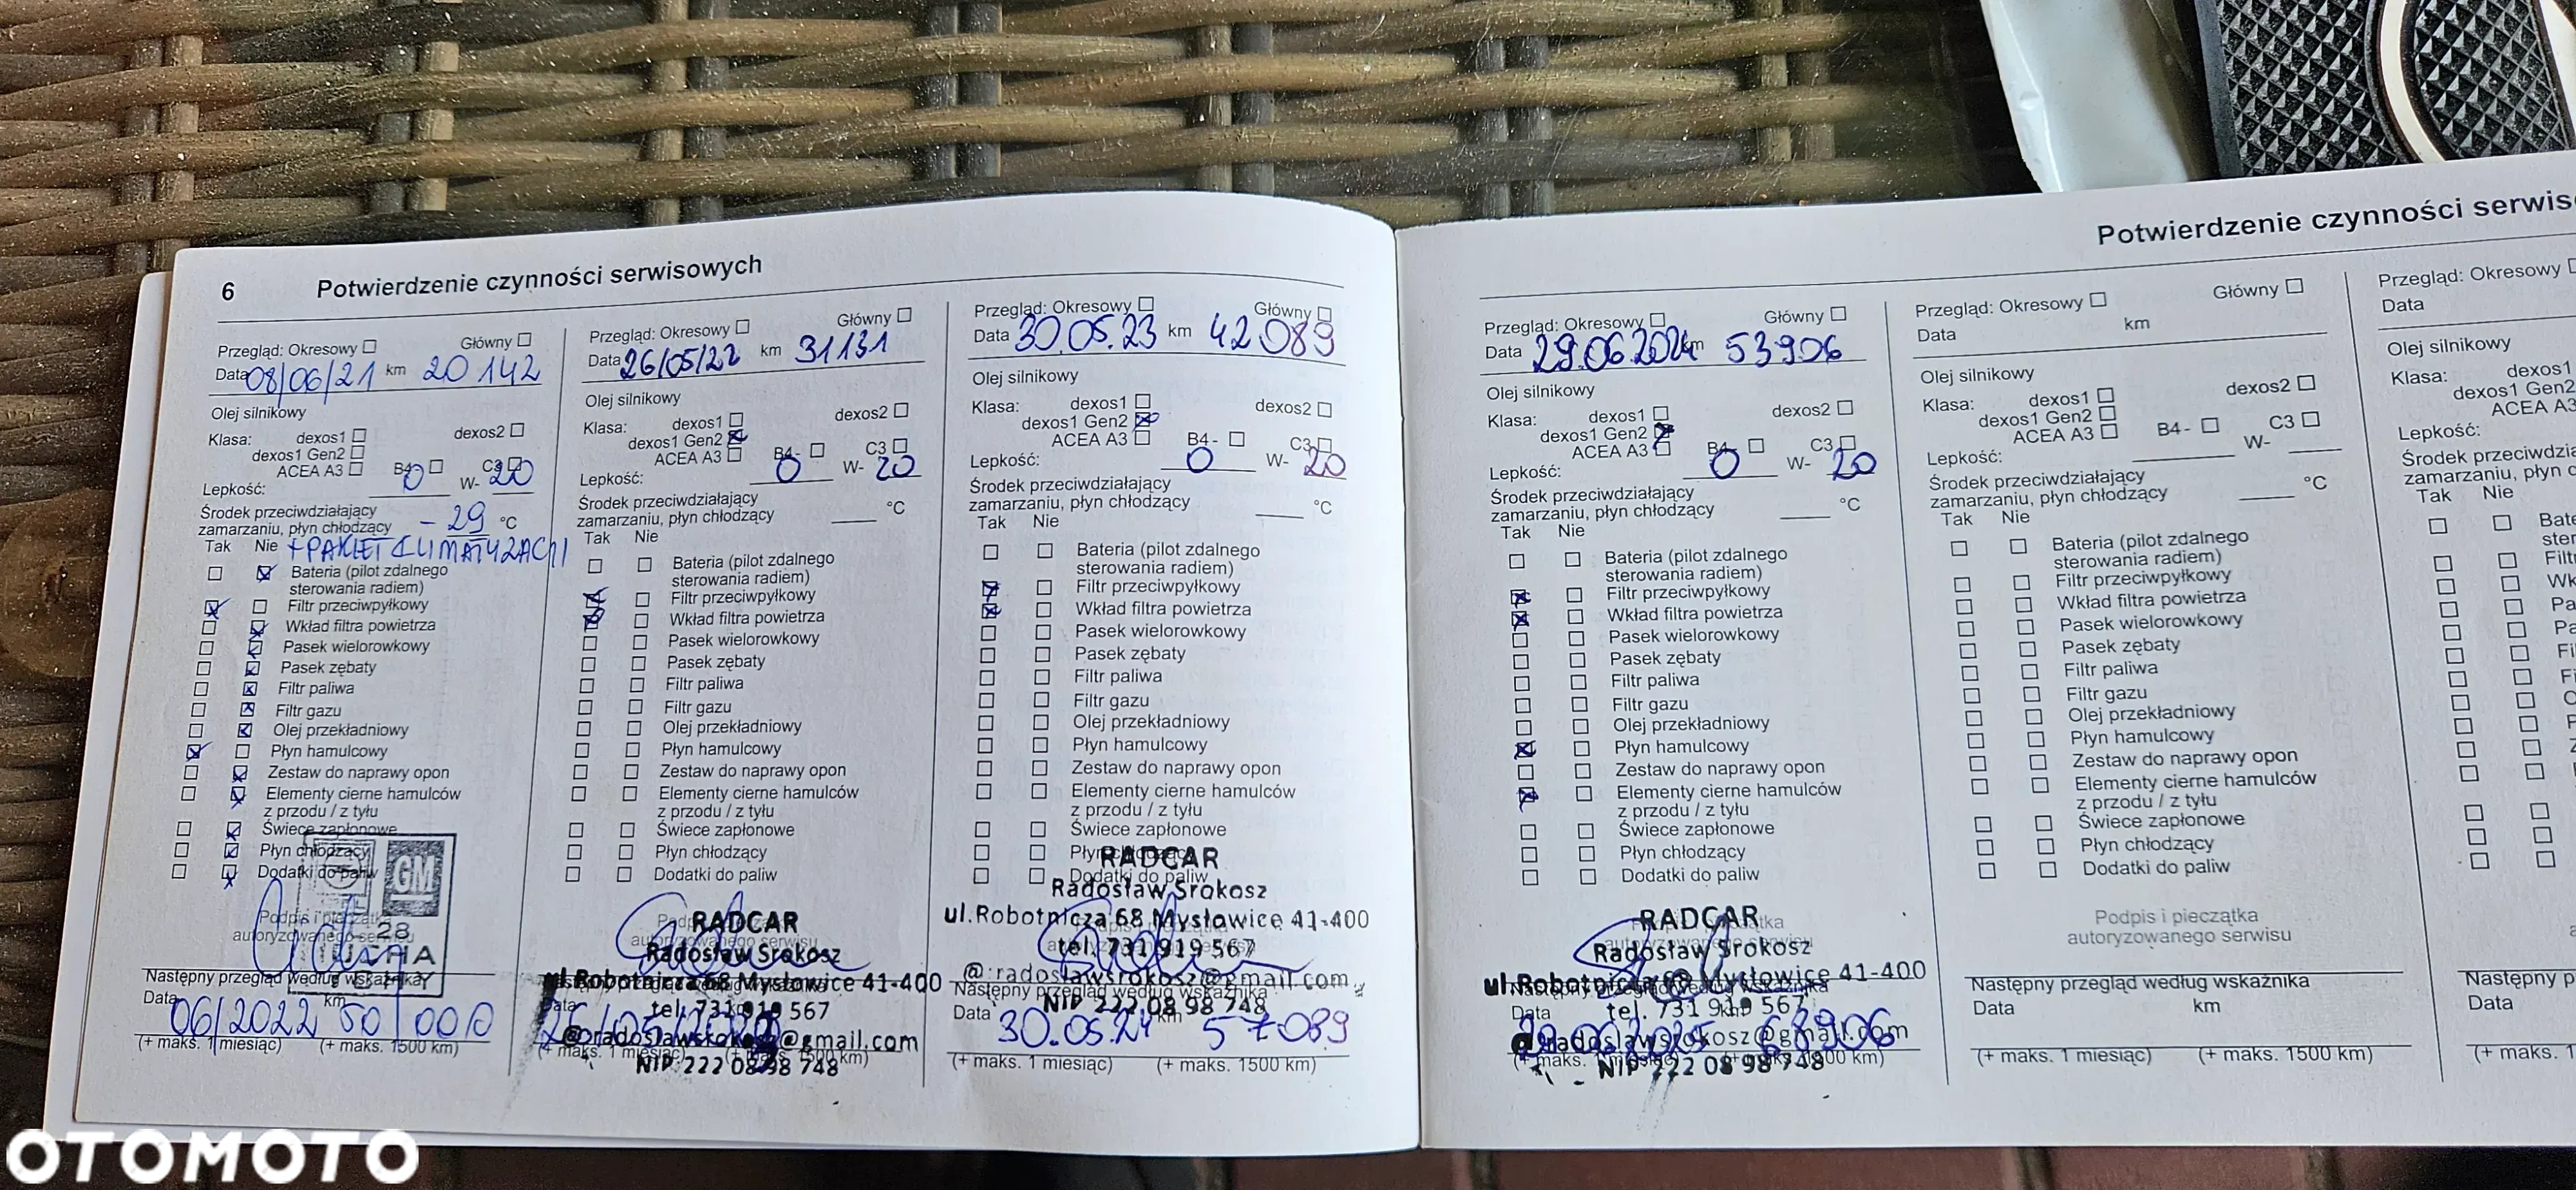 6 Potwierdzenie czynności serwisowych
Przegląd: Okresowy Główny
Data 08/06/21 km 20 142
Olej silnikowy
Klasa: dexos1 dexos2
dexos1 Gen2
ACEA A3 B4- C3
Lepkość: 0 W- 20
Środek przeciwdziałający
zamarzaniu, płyn chłodzący -29 °C
Tak Nie + PAKIET KLIMATYZACJI
Bateria (pilot zdalnego
sterowania radiem)
Filtr przeciwpyłkowy
Wkład filtra powietrza
Pasek wielorowkowy
Pasek zębaty
Filtr paliwa
Filtr gazu
Olej przekładniowy
Płyn hamulcowy
Zestaw do naprawy opon
Elementy cierne hamulców
z przodu / z tyłu
Świece zapłonowe
Płyn chłodzący
Dodatki do paliw
GM
Podpis i pieczątka
autoryzowanego serwisu
28
Następny przegląd według wskaźnika
Data 06/2022 km 50 000
(+ maks. 1 miesiąc) (+ maks. 1500 km)
Przegląd: Okresowy Główny
Data 26/05/22 km 31131
Olej silnikowy
Klasa: dexos1 dexos2
dexos1 Gen2
ACEA A3 B4- C3
Lepkość: 0 W- 20
Środek przeciwdziałający
zamarzaniu, płyn chłodzący °C
Tak Nie
Bateria (pilot zdalnego
sterowania radiem)
Filtr przeciwpyłkowy
Wkład filtra powietrza
Pasek wielorowkowy
Pasek zębaty
Filtr paliwa
Filtr gazu
Olej przekładniowy
Płyn hamulcowy
Zestaw do naprawy opon
Elementy cierne hamulców
z przodu / z tyłu
Świece zapłonowe
Płyn chłodzący
Dodatki do paliw
RADCAR
Radosław Srokosz
ul.Robotnicza 68 Mysłowice 41-400
tel. 731 919 567
@:radoslawsrokosz@gmail.com
NIP 222 08 98 748
Przegląd: Okresowy Główny
Data 30.05.23 km 42 089
Olej silnikowy
Klasa: dexos1 dexos2
dexos1 Gen2
ACEA A3 B4- C3
Lepkość: 0 W- 20
Środek przeciwdziałający
zamarzaniu, płyn chłodzący °C
Tak Nie
Bateria (pilot zdalnego
sterowania radiem)
Filtr przeciwpyłkowy
Wkład filtra powietrza
Pasek wielorowkowy
Pasek zębaty
Filtr paliwa
Filtr gazu
Olej przekładniowy
Płyn hamulcowy
Zestaw do naprawy opon
Elementy cierne hamulców
z przodu / z tyłu
Świece zapłonowe
Płyn chłodzący
Dodatki do paliw
RADCAR
Radosław Srokosz
ul.Robotnicza 68 Mysłowice 41-400
tel. 731 919 567
@:radoslawsrokosz@gmail.com
Następny przegląd według wskaźnika
NIP 222 08 98 748
Data 30.05.24 km 57089
(+ maks. 1 miesiąc) (+ maks. 1500 km)
Potwierdzenie czynności serwis
Przegląd: Okresowy Główny
Data 29.06.2024 km 53906
Olej silnikowy
Klasa: dexos1 dexos2
dexos1 Gen2
ACEA A3 B4- C3
Lepkość: 0 W- 20
Środek przeciwdziałający
zamarzaniu, płyn chłodzący °C
Tak Nie
Bateria (pilot zdalnego
sterowania radiem)
Filtr przeciwpyłkowy
Wkład filtra powietrza
Pasek wielorowkowy
Pasek zębaty
Filtr paliwa
Filtr gazu
Olej przekładniowy
Płyn hamulcowy
Zestaw do naprawy opon
Elementy cierne hamulców
z przodu / z tyłu
Świece zapłonowe
Płyn chłodzący
Dodatki do paliw
RADCAR
Radosław Srokosz
ul.Robotnicza 68 Mysłowice 41-400
tel. 731 919 567
@:radoslawsrokosz@gmail.com
NIP 222 08 98 748
Przegląd: Okresowy Główny
Data km
Olej silnikowy
Klasa: dexos1 dexos2
dexos1 Gen2
ACEA A3 B4- C3
Lepkość: W-
Środek przeciwdziałający
zamarzaniu, płyn chłodzący °C
Tak Nie
Bateria (pilot zdalnego
sterowania radiem)
Filtr przeciwpyłkowy
Wkład filtra powietrza
Pasek wielorowkowy
Pasek zębaty
Filtr paliwa
Filtr gazu
Olej przekładniowy
Płyn hamulcowy
Zestaw do naprawy opon
Elementy cierne hamulców
z przodu / z tyłu
Świece zapłonowe
Płyn chłodzący
Dodatki do paliw
Podpis i pieczątka
autoryzowanego serwisu
Następny przegląd według wskaźnika
Data km
(+ maks. 1 miesiąc) (+ maks. 1500 km)
Przegląd: Okresowy
Data
Olej silnikowy
Klasa: dexos1
dexos1 Gen2
ACEA A3
Lepkość:
Środek przeciwdziała
zamarzaniu, płyn c
Tak Nie
Następny p
Data
(+ maks. 1
OTOMOTO